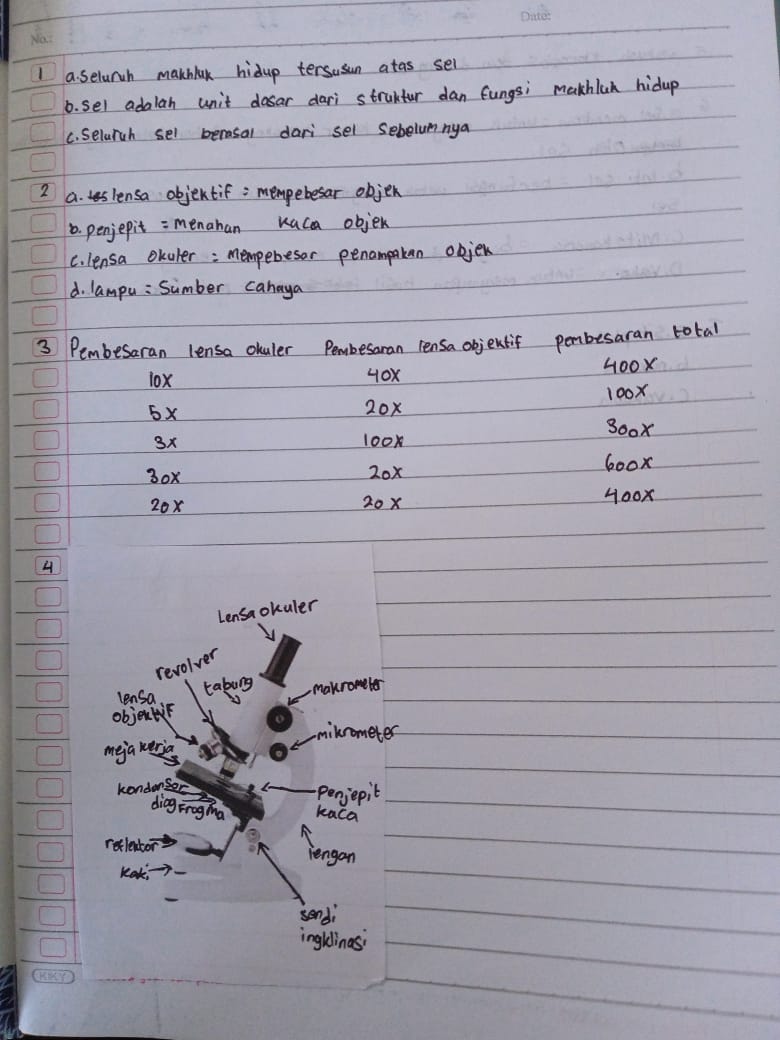 No.:
Date:
1 a. Seluruh makhluk hidup tersusun atas sel
b. sel adalah unit dasar dari struktur dan fungsi makhluk hidup
c. Seluruh sel berasal dari sel sebelumnya
2 a. lensa objektif = mempebesar objek
b. penjepit = menahan kaca objek
c. lensa okuler = mempebesar penampakan objek
d. lampu = Sumber cahaya
3 Pembesaran lensa okuler Pembesaran lensa objektif pembesaran total
10x 40x 400x
5x 20x 100x
3x 100x 300x
30x 20x 600x
20x 20x 400x
4
Lensa okuler
revolver
tabung
makrometer
lensa
objektif
mikrometer
meja kerja
kondensor
diagFragma
Penjepit
kaca
reflektor
lengan
kaki
sendi
ingklinasi
KKY